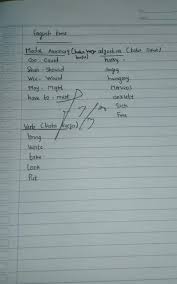 Modal Auxiliary (kata kerja adjective (kata sifat)
Can - Could
Shall - Should angry
Will - Would hungry
May - Might Nervous
have to - must
Sick
Fine
Verb (kata kerja)
bring
Write
take
Look
Put